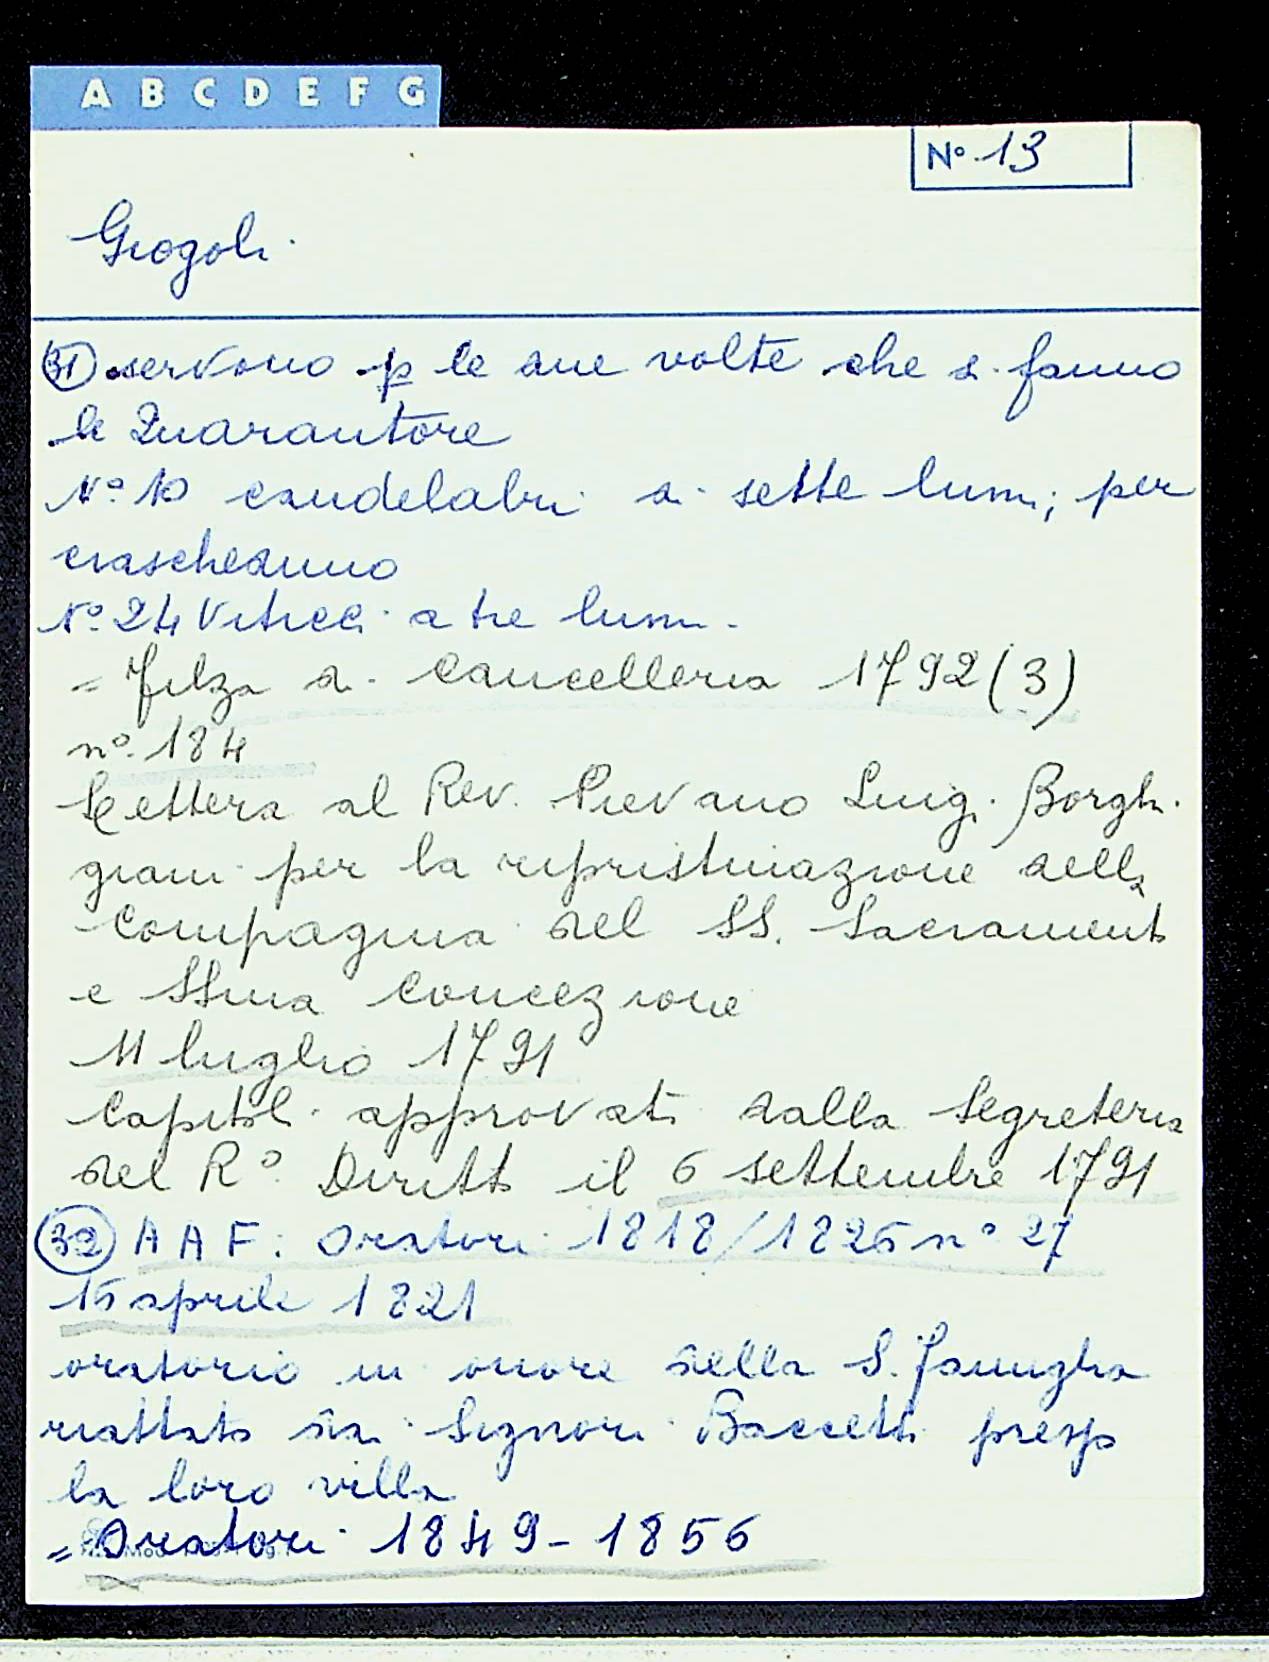 A B C D E F G
Nº 13
Giogoli
31 servono p le due volte che si fanno
le Quarantore
Nº 10 candelabri a sette lumi; per
ciascheduno
Nº 24 Viticci a tre lumi
= Filza di Cancelleria 1792 (3)
nº 184
Lettera al Rev. Pievano Luigi Borghi
giani per la ripristinazione della
Compagnia del SS. Sacramento
e SSma Concezione
11 luglio 1791
Capitoli approvati dalla Segreteria
del Rº Diritto il 6 settembre 1791
32 A A F: Oratori 1818/1826 nº 27
15 aprile 1821
oratorio in onore della S. Famiglia
riattato dai Signori Baccetti presso
la loro villa
= Oratori 1849-1856